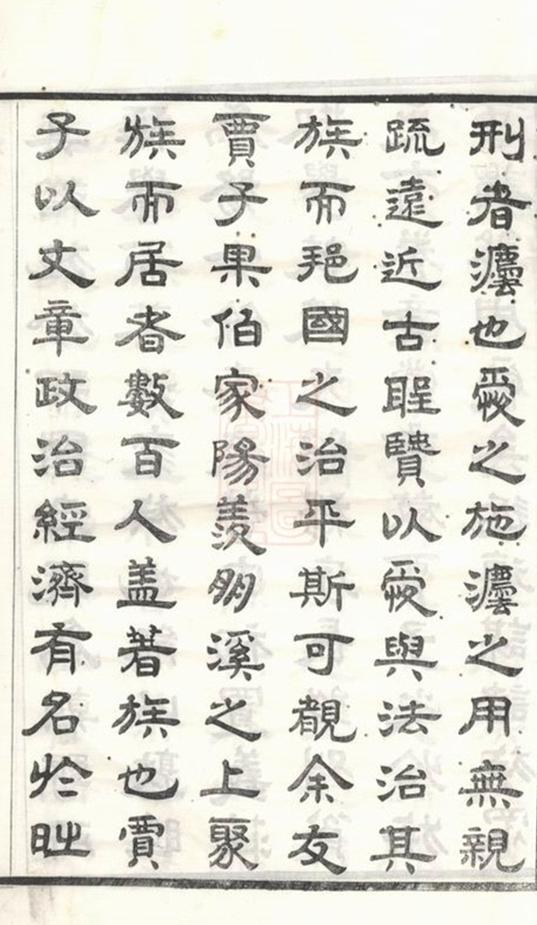 刑者灋也愛之施灋之用無親
疏遠近古聖賢以愛與法治其
族而挹國之治平斯可覩余友
賈子果伯家陽羨明溪之上聚
族而居者數百人盖著族也賈
子以文章政治經濟有名於時